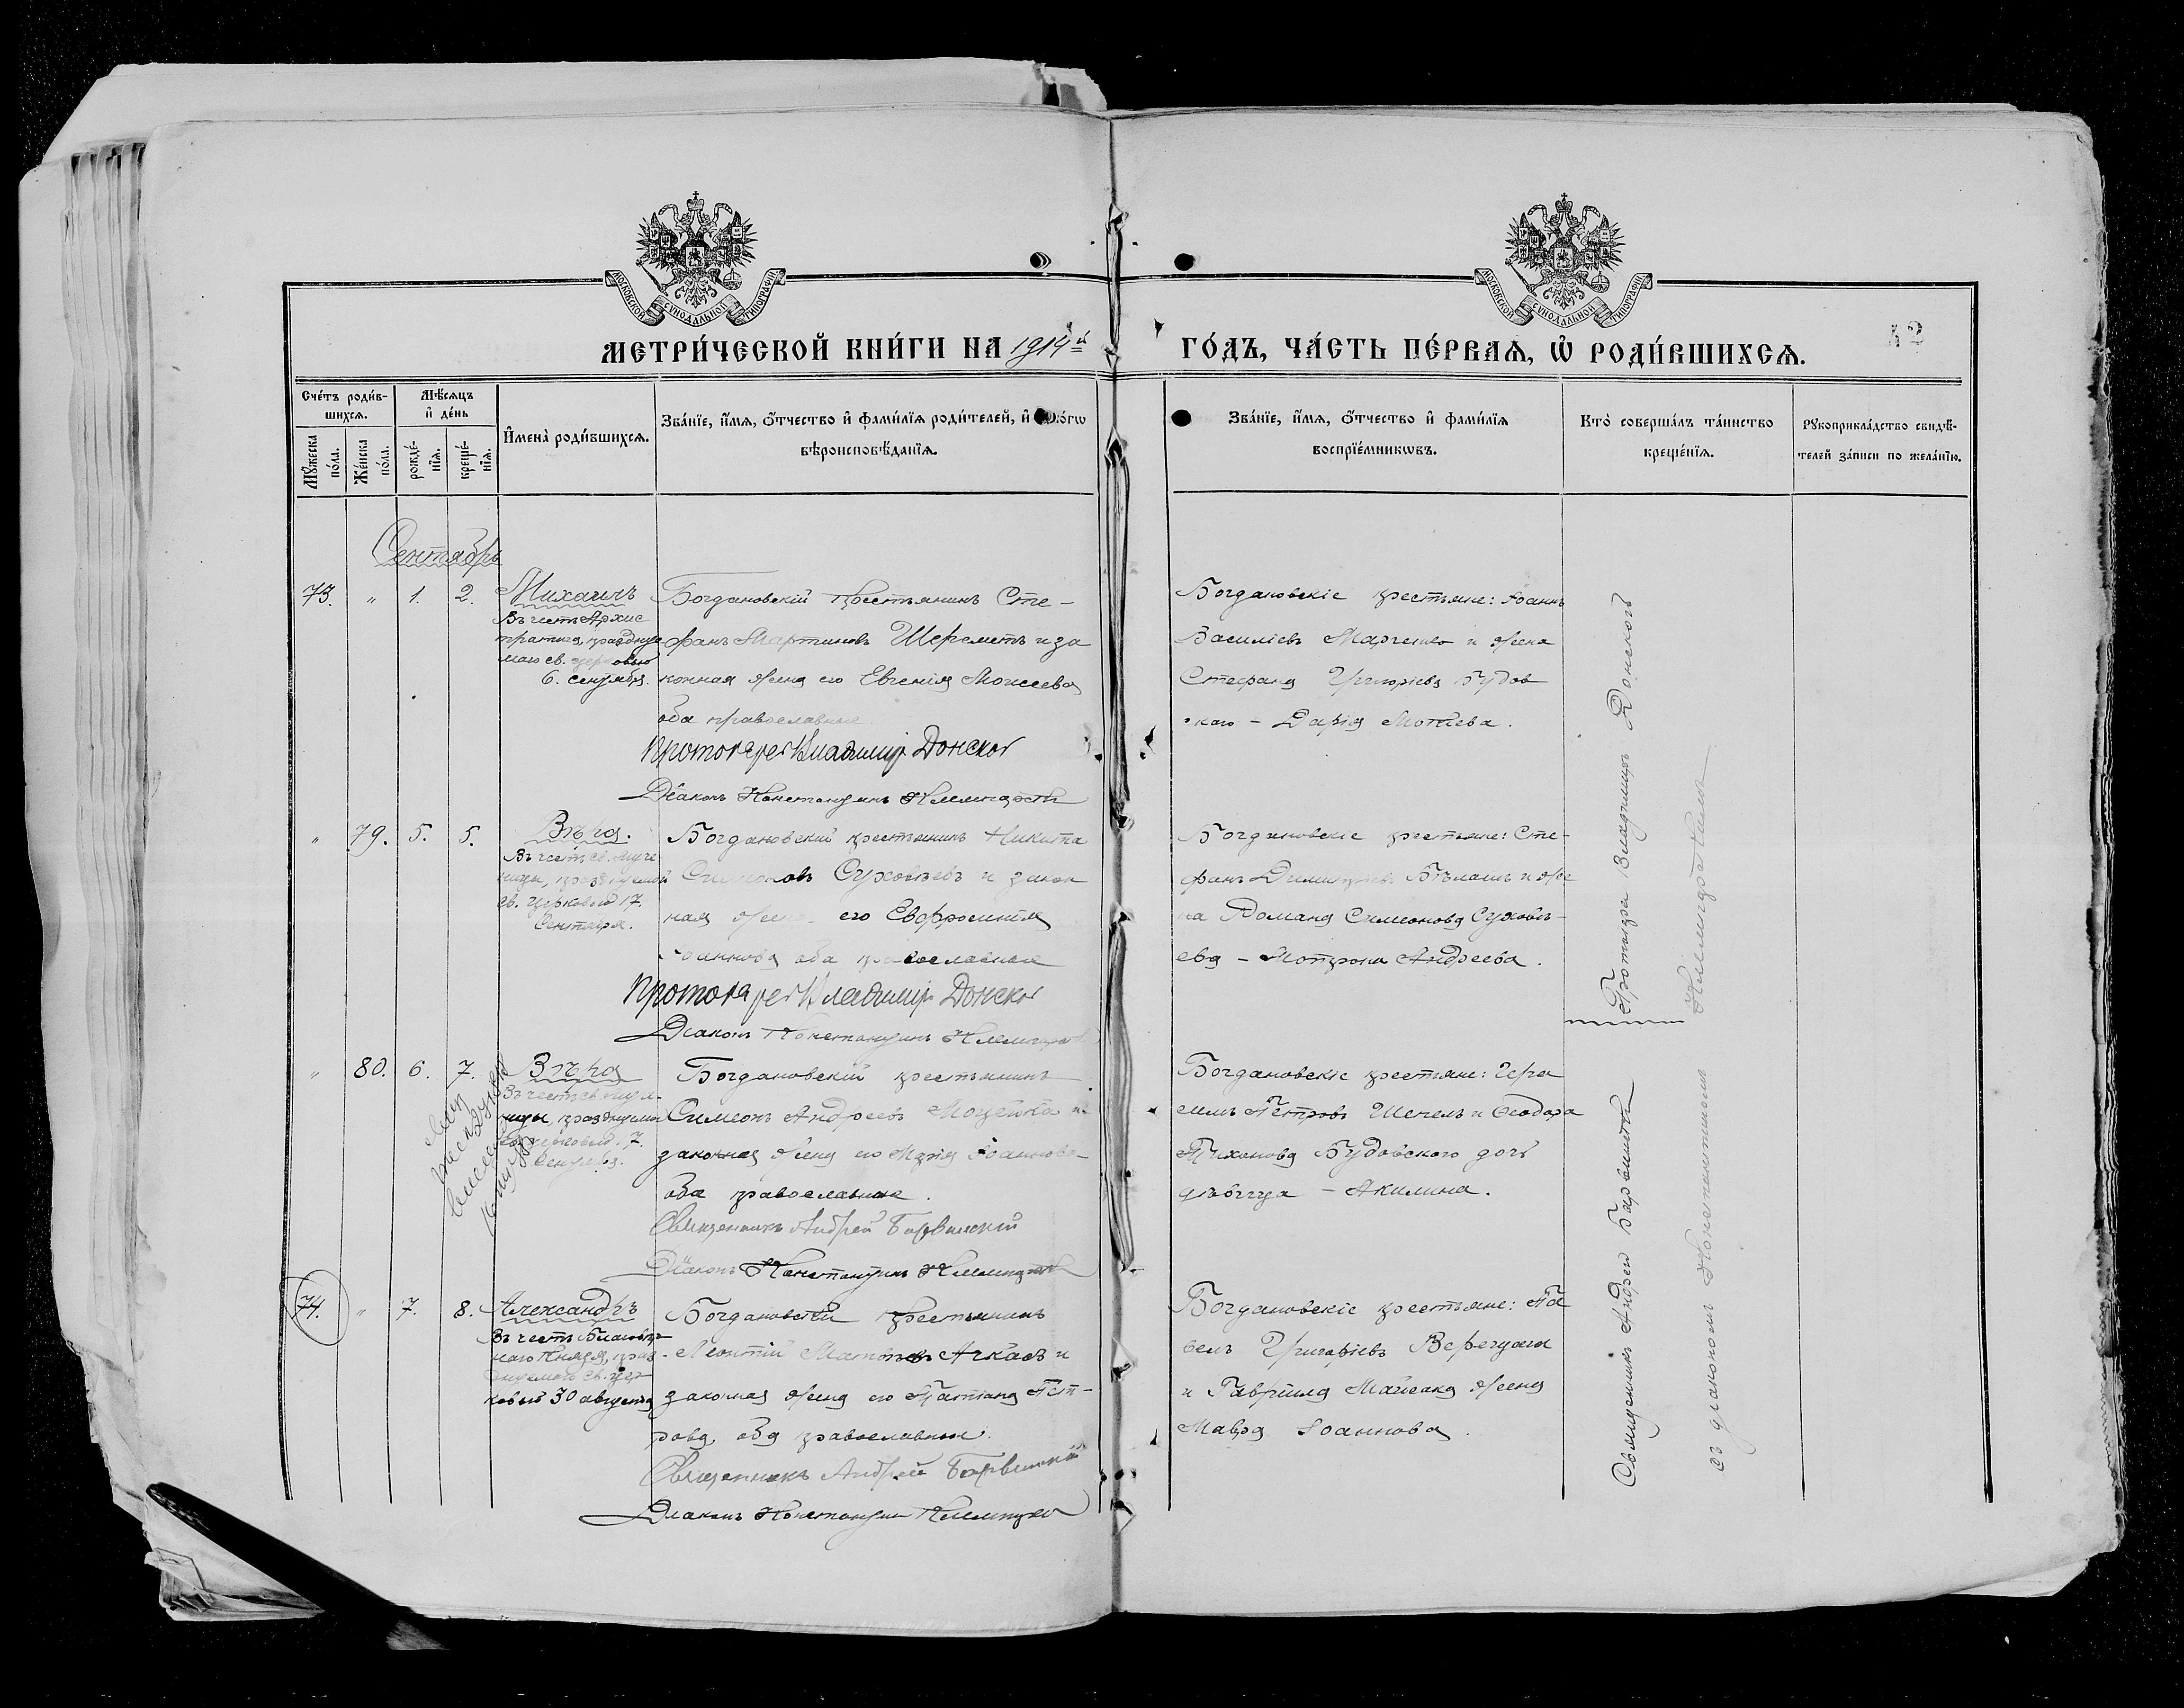 МОСКОВСКОЙ СѴНОДАЛЬНОЙ ТИПОГРАФІИ
МОСКОВСКОЙ СѴНОДАЛЬНОЙ ТИПОГРАФІИ
МЕТРИ́ЧЕСКОЙ КНИ́ГИ НА 1914й ГО́ДЪ, ЧА́СТЬ ПЕ́РВАЯ, Ѡ РОДИ́ВШИХСЯ.
Сче́тъ роди́в-
шихся.
Мѣ́сяцъ
и҆ де́нь
Мꙋ́жеска
по́ла.
Же́нска
по́ла.
рожде́-
нїя.
креще́-
нїя.
И҆мена̀ роди́вшихся.
Зва́нїе, и҆́мя, ѻ҆́тчество и҆ фами́лїя роди́телей, и҆
вѣроисповѣ́данїя.
Зва́нїе, и҆́мя, ѻ҆́тчество и҆ фами́лїя
воспрїе́мникѡвъ.
Кто̀ соверша́лъ та́инство
креще́нїя.
Рꙋкоприкла́дство свидѣ́-
телей за́писи по жела́нїю.
Сентябрь
73. " 1. 2. Михаилъ
Въ честь Архис
тратига, праздную
маго св. церковью
6. сентября.
Богдановскій крестьянинъ Сте-
фанъ Мартиновъ Шереметъ и за
конная жена его Евгенія Моисеева
оба православные.
Протоіерей Владиміръ Донской
Діаконъ Константинъ
Богдановскіе крестьяне: Іоаннъ
Василіевъ Марченко и жена
Стефана Григоріева Будов
скаго - Дарія Матѳеева.
" 79. 5. 5. Вѣра.
Въ честь св. муче
ницы, празднуемой
св. церковью 17.
Сентября.
Богдановскій крестьянинъ Никита
Симеоновъ Суховѣевъ и закон
ная жена его Евфросинія
Іоаннова оба православные
Протоіерей Владиміръ Донской
Діаконъ Константинъ
Богдановскіе крестьяне: Сте-
фанъ Димитріевъ Бѣлашъ и же
на Романа Симеонова Суховѣ-
ева - Мотрона Андреева.
Протоіерей Владиміръ Донской
" 80. 6. 7. Вѣра
Въ честь св. муче-
ницы, празднуемой
св. церковью 17.
Сентября.
Богдановскій крестьянинъ
Симеонъ Андреевъ и
законная жена его Марія Іоаннова
оба православные.
Священникъ Андрей Барвинскій
Діаконъ Константинъ
Богдановскіе крестьяне: Гера
симъ Петровъ и Ѳеодора
Тихонова Будовского дочь
дѣвица - Акилина.
74. " 7. 8. Александръ
Въ честь Благовѣр
наго Князя, праз-
днуемаго св. цер
ковью 30 августа
Богдановскій крестьянинъ
Леонтій Матѳеевъ Аркасъ и
законная жена его Татіана Пет-
рова, оба православные.
Священникъ Андрей Барвинскій
Діаконъ Константинъ
Богдановскіе крестьяне: Па
велъ Григоріевъ Верещага
и Гавріила жена
Мавра Іоаннова.
Священникъ Андрей Барвинскій
съ діакономъ Константиномъ